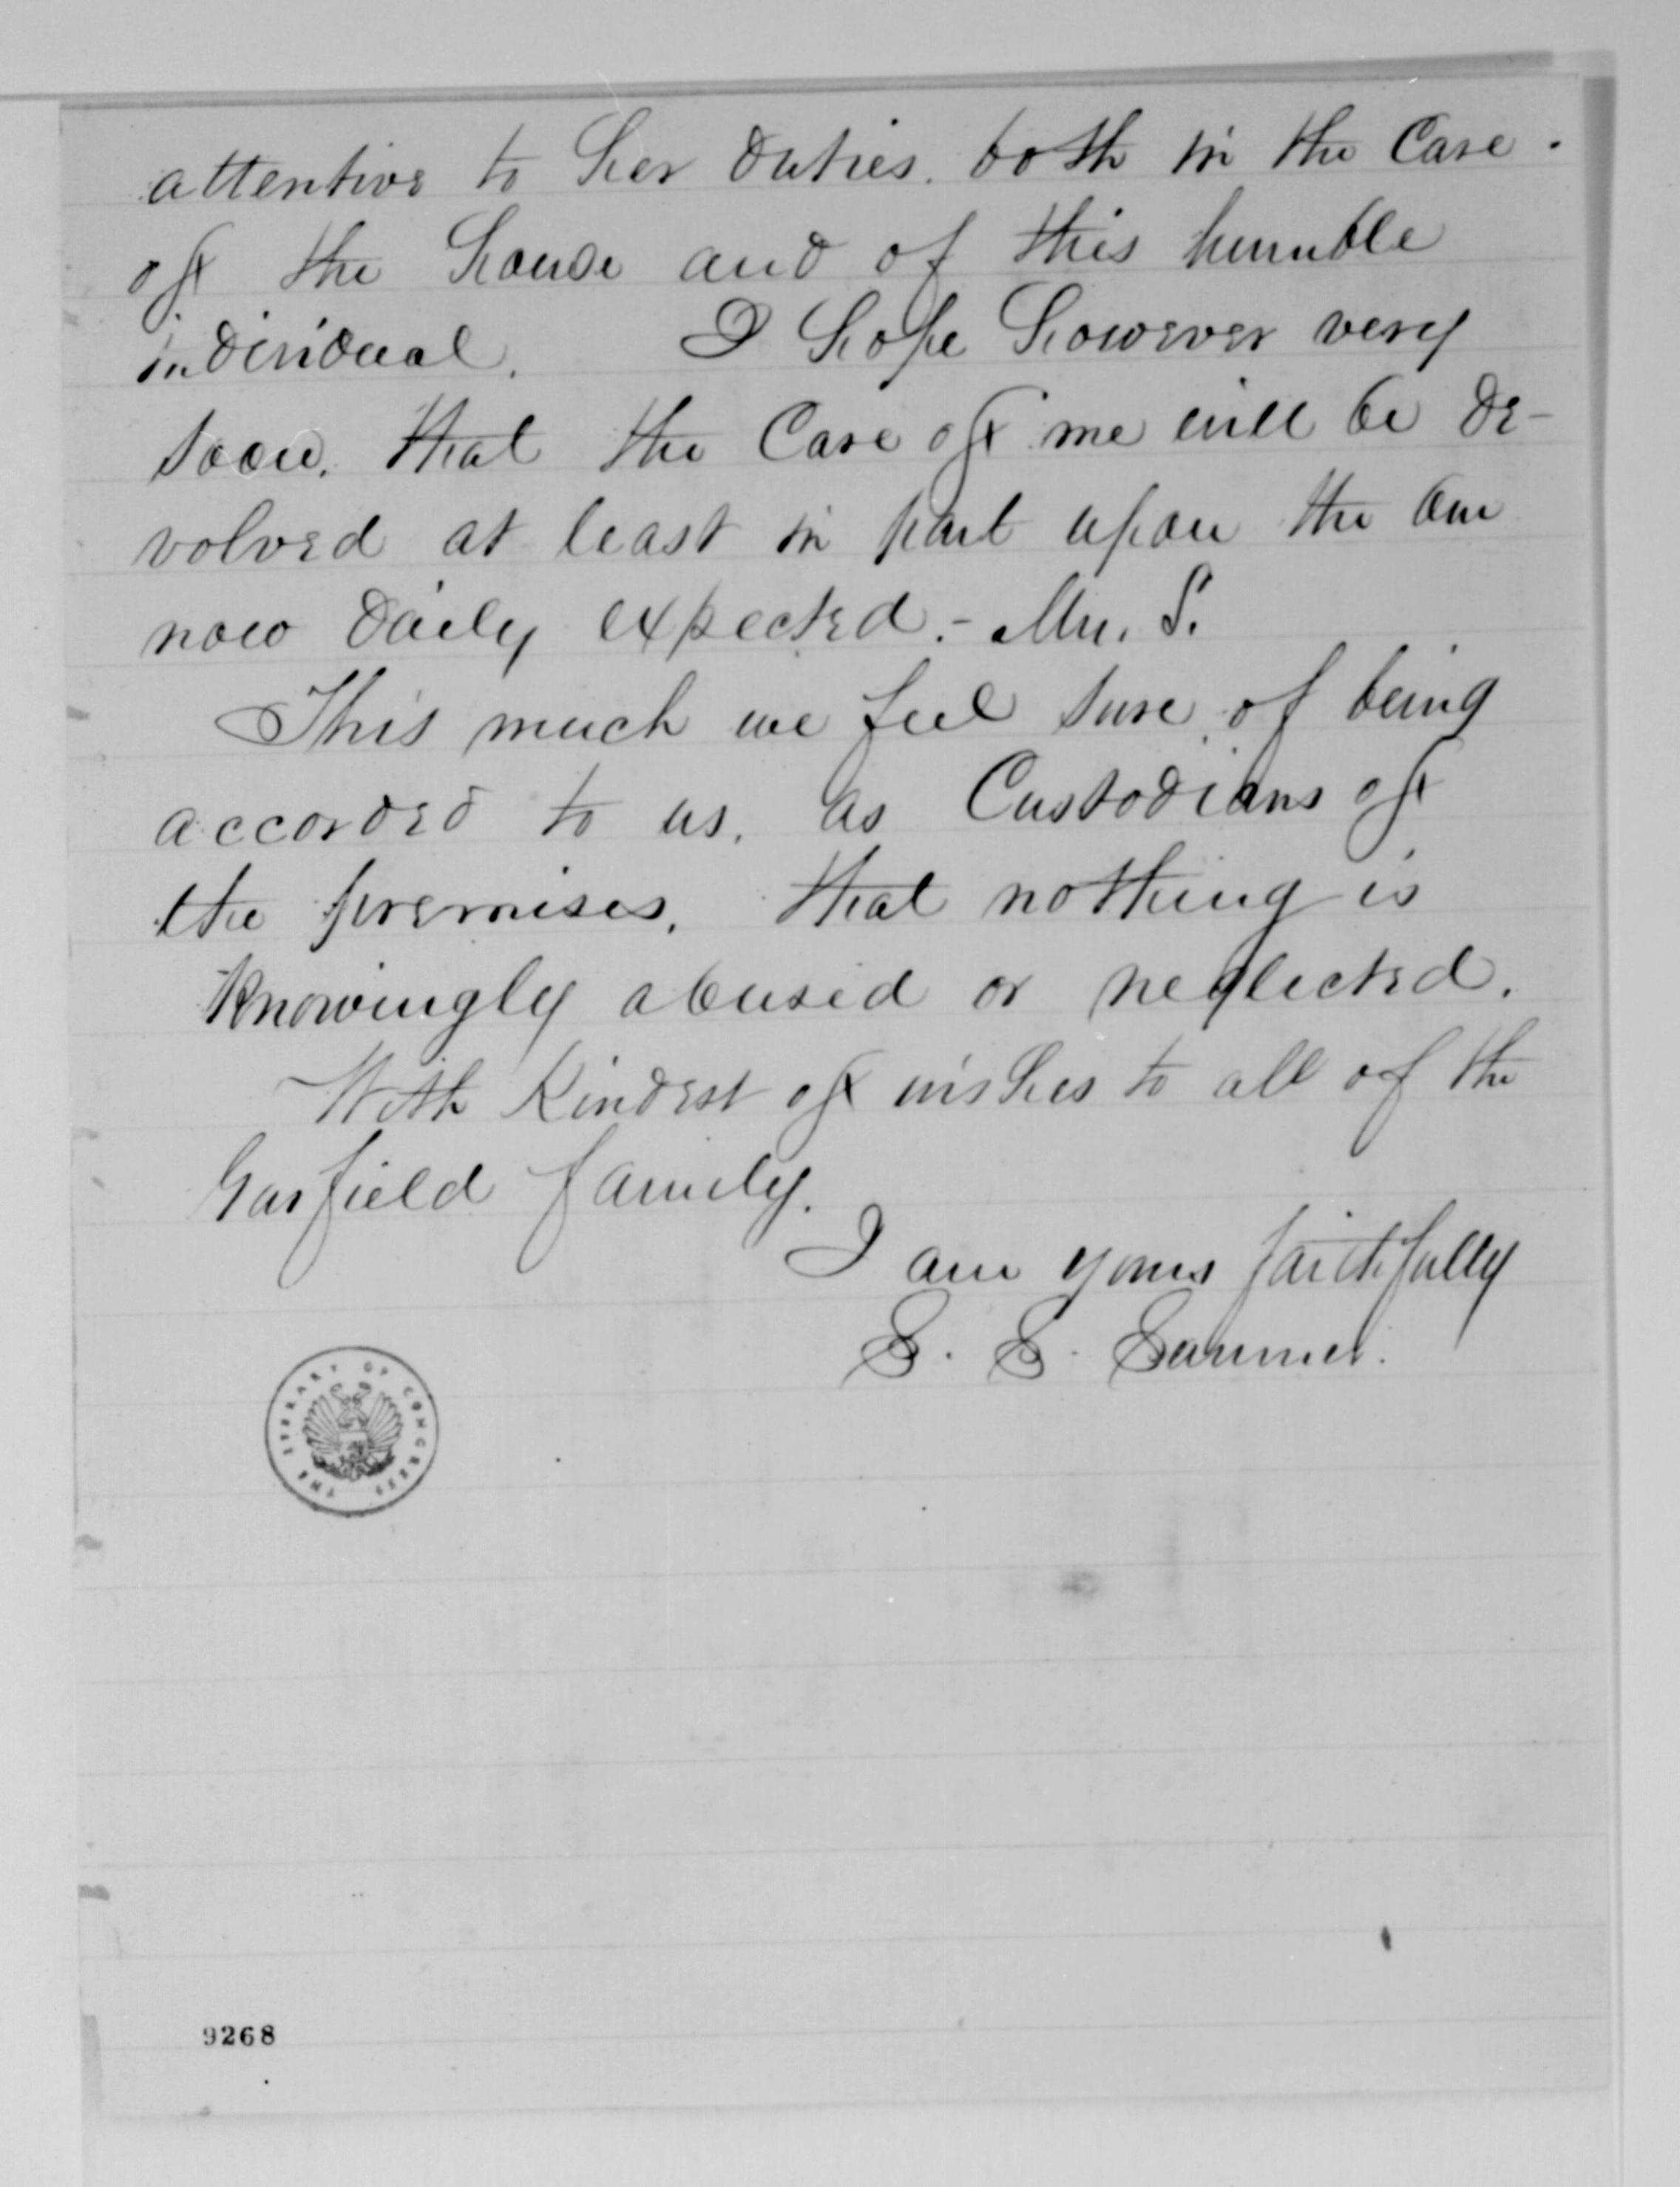 attentive to her duties. both in the Care.
of the house and of this humble
individual. I hope however very
soon. that the Care of me will be de-
volved at least in part upon the one
now daily expected.- Mrs. S.
This much we feel sure of being
accorded to us. as Custodians of
the premises. that nothing is
Knowingly abused or neglected.
With Kindest of wishes to all of the
Garfield family.
I am yours faithfully
S. S. Sumner.
THE LIBRARY OF CONGRESS
9268